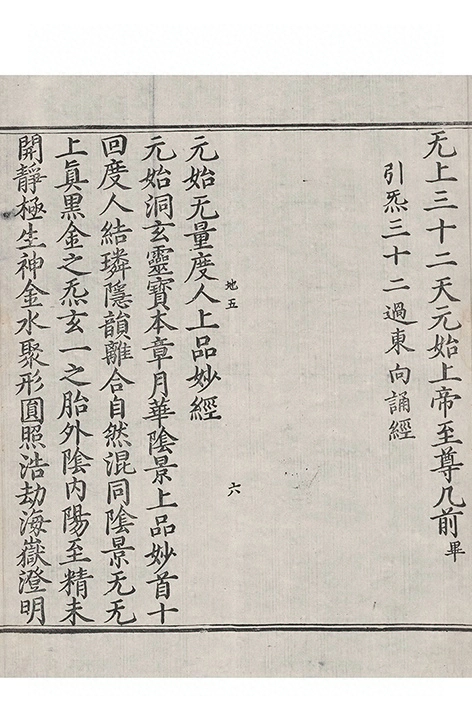 无上三十二天元始上帝至尊几前畢
引炁三十二過東向誦經
地五
六
元始无量度人上品妙經
元始洞玄靈寶本章月華陰景上品妙首十
回度人結璘隱韻離合自然混同陰景无无
上眞黑金之炁玄一之胎外陰内陽至精未
開靜極生神金水聚形圓照浩劫海嶽澄明